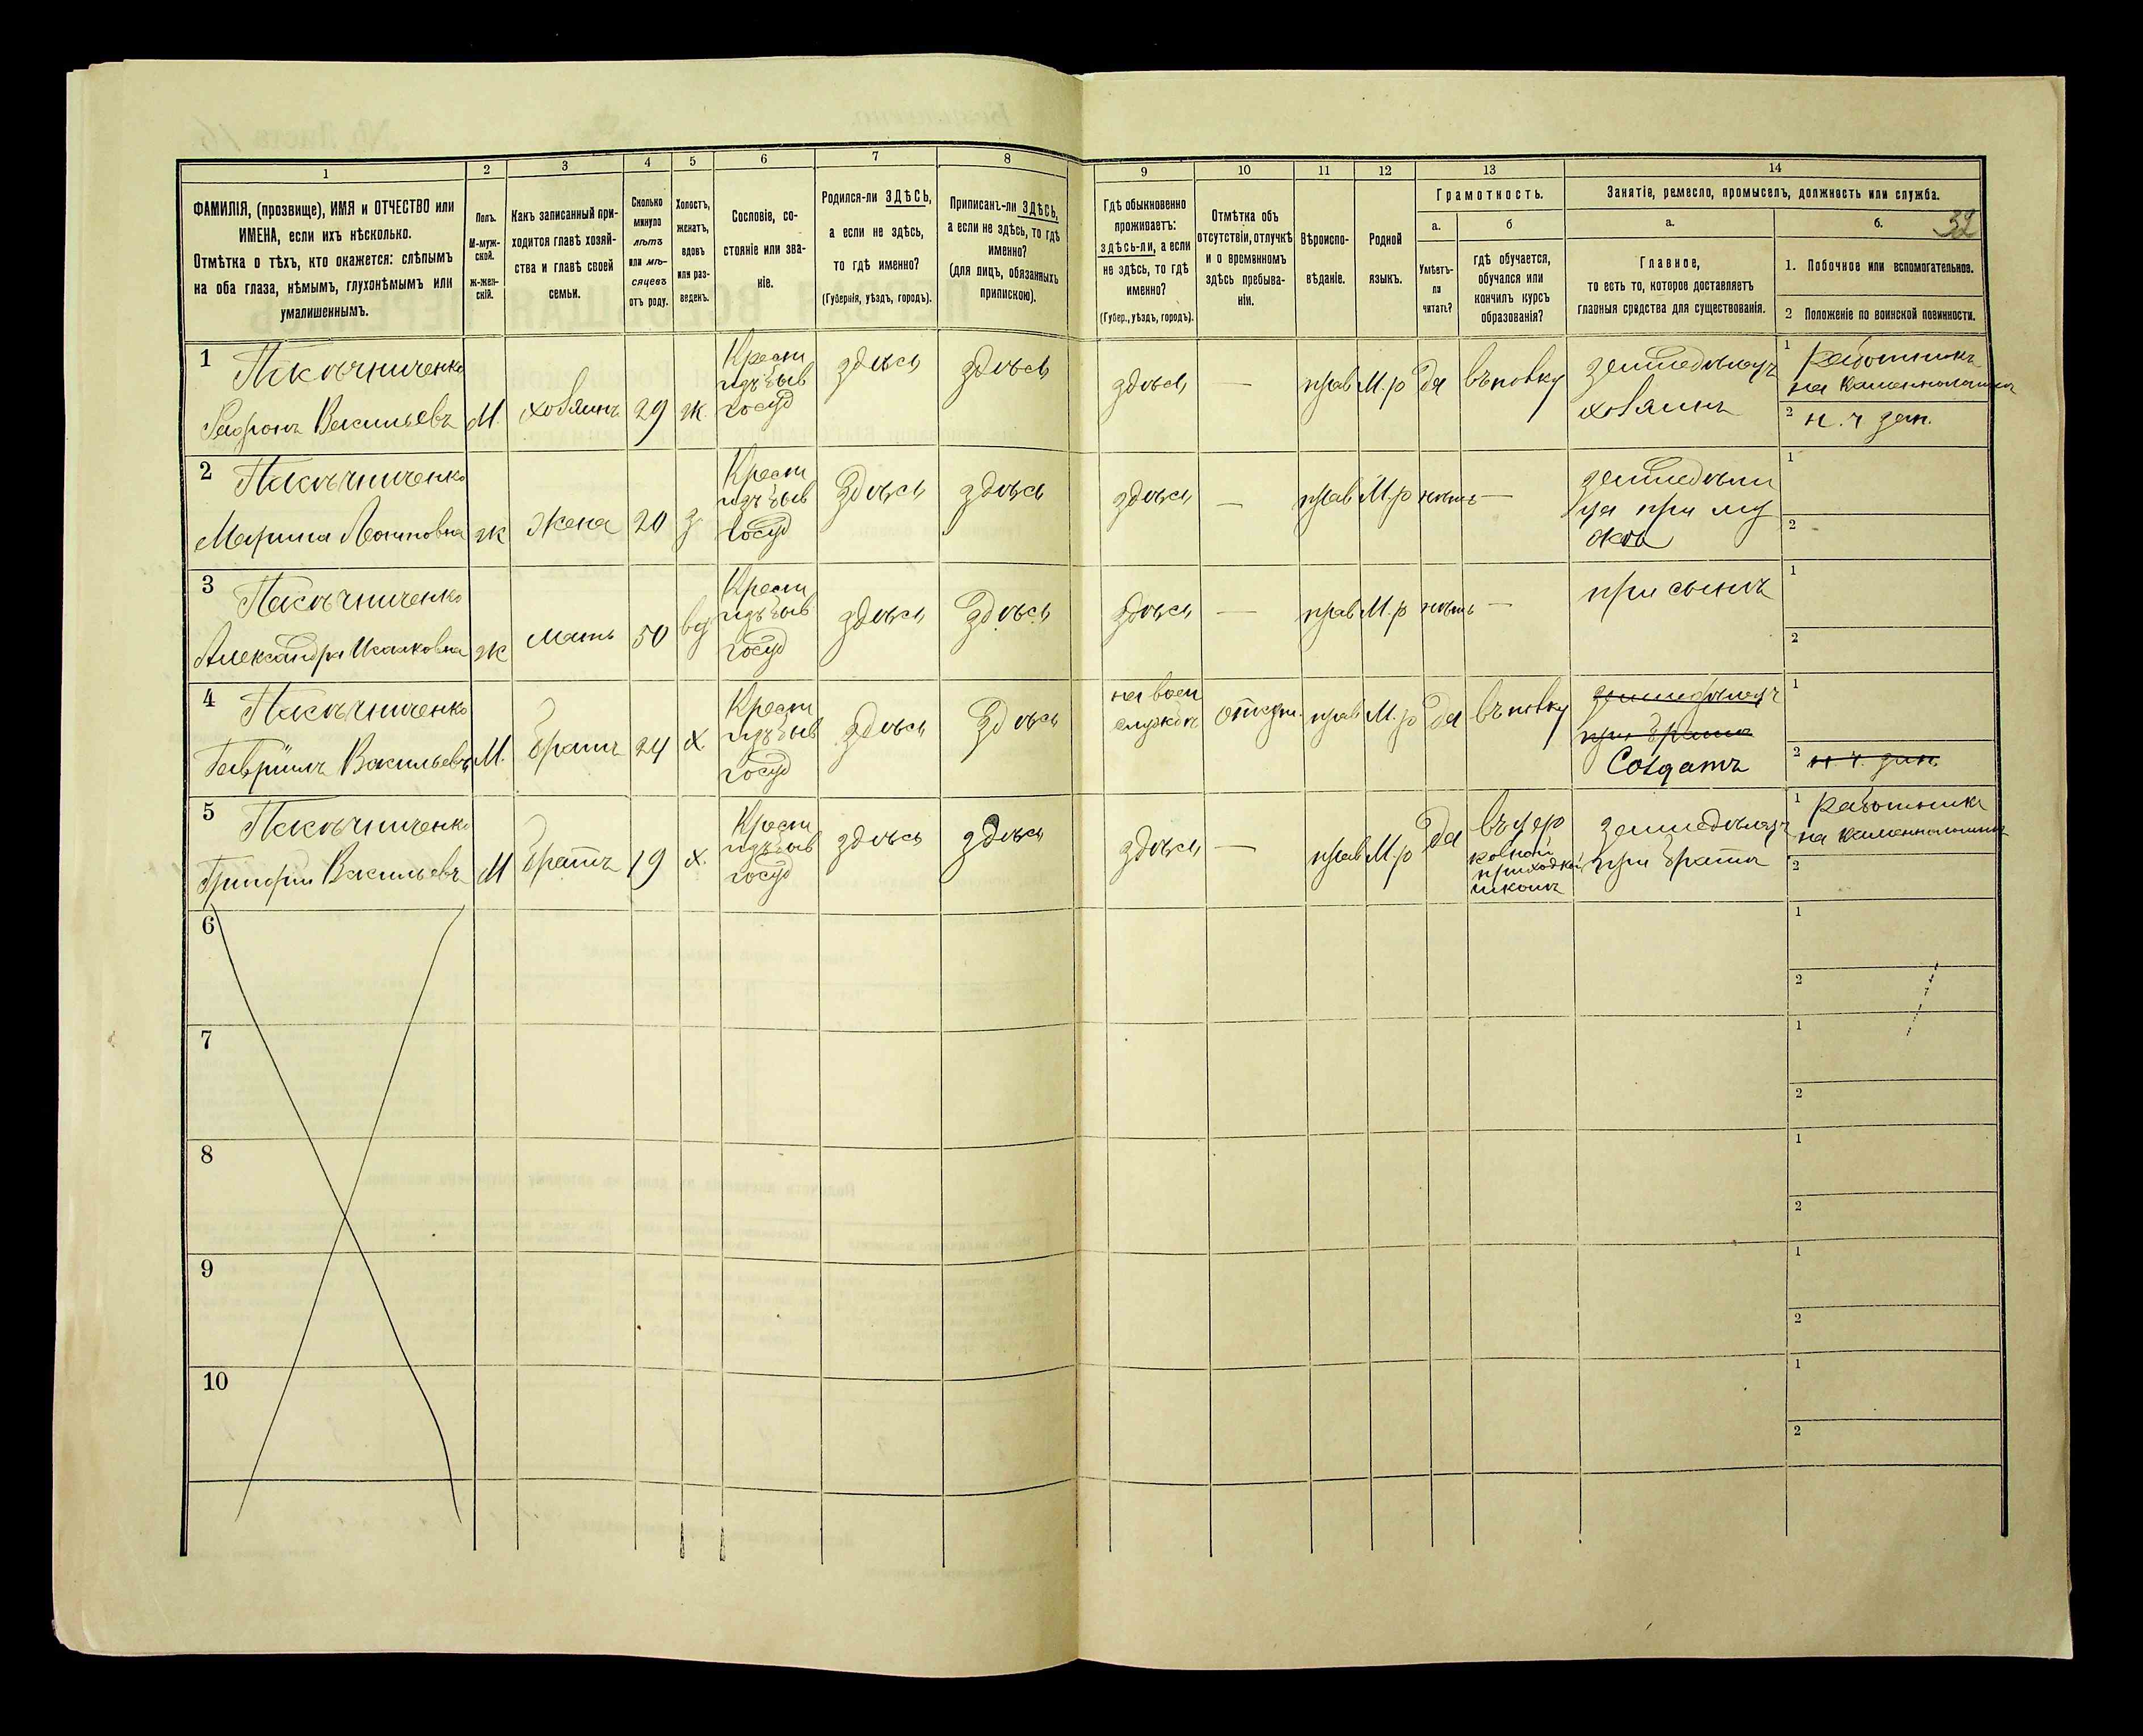 1 2 3 4 5 6 7 8 9 10 11 12 13 14
ФАМИЛІЯ, (прозвище), ИМЯ и ОТЧЕСТВО или
ИМЕНА, если ихъ нѣсколько.
Отмѣтка о тѣхъ, кто окажется: слѣпымъ
на оба глаза, нѣмымъ, глухонѣмымъ или
умалишеннымъ.
Полъ.
М-муж-
ской.
Ж-жен-
скій.
Какъ записанный при-
ходится главѣ хозяй-
ства и главѣ своей
семьи.
Сколько
минуло
лѣтъ
или мѣ-
сяцевъ
отъ роду.
Холостъ,
женатъ,
вдовъ
или раз-
веденъ.
Сословіе, со-
стояніе или зва-
ніе.
Родился-ли ЗДѢСЬ,
а если не здѣсь,
то гдѣ именно?
(Губернія, уѣздъ, городъ).
Приписанъ-ли ЗДѢСЬ,
а если не здѣсь, то гдѣ
именно?
(для лицъ, обязанныхъ
припискою).
Гдѣ обыкновенно
проживаетъ:
здѣсь-ли, а если
не здѣсь, то гдѣ
именно?
(Губер., уѣздъ, городъ).
Отмѣтка объ
отсутствіи, отлучкѣ
и о временномъ
здѣсь пребыва-
ніи.
Вѣроиспо-
вѣданіе.
Родной
языкъ.
Грамотность.
а.
Умѣетъ-
ли
читать?
б
гдѣ обучается,
обучался или
кончилъ курсъ
образованія?
Занятіе, ремесло, промыселъ, должность или служба.
а.
Главное,
то есть то, которое доставляетъ
главныя средства для существованія.
б.
32
1. Побочное или вспомогательное.
2 Положеніе по воинской повинности.
1
Пасѣчниченко
Сафронъ Васильевъ
М.
хозяинъ
29
ж.
Крест
изъ быв
госуд
здѣсь
здѣсь
здѣсь
—
прав
М.р
да
въ полку
земледѣлецъ
хозяинъ
1 работникъ
на каменноломнѣ
2 н. ч. зап.
2
Пасѣчниченко
Марина Логиновна
ж
жена
20
з
Крест
изъ быв
госуд
здѣсь
здѣсь
здѣсь
—
прав
М.р
нѣтъ
—
земледѣли
ца при му
жѣ
1
2
3
Пасѣчниченко
Александра Исааковна
ж
мать
50
вд
Крест
изъ быв
госуд
здѣсь
здѣсь
здѣсь
—
прав
М.р
нѣтъ
—
при сынѣ
1
2
4
Пасѣчниченко
Гаврiилъ Васильевъ
М.
братъ
24
х.
Крест
изъ быв
госуд
здѣсь
здѣсь
на воен
службѣ
прав
М.р
да
въ полку
земледѣлецъ
при братѣ
Солдатъ
1
2 н. ч. зап.
5
Пасѣчниченко
Григорій Васильевъ
М
братъ
19
х.
Крест
изъ быв
госуд
здѣсь
здѣсь
здѣсь
—
прав
М.р
да
въ цер
ковной
приходской
школѣ
земледѣлецъ
при братѣ
1 работникъ
на каменноломнѣ
2
6
1
2
7
1
2
8
1
2
9
1
2
10
1
2